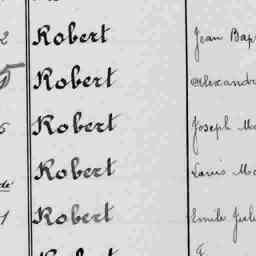 2 Robert Jean Bap
Robert Alexandr
5 Robert Joseph Ma
Robert Louis Ma
1 Robert Emile Jul
Robert